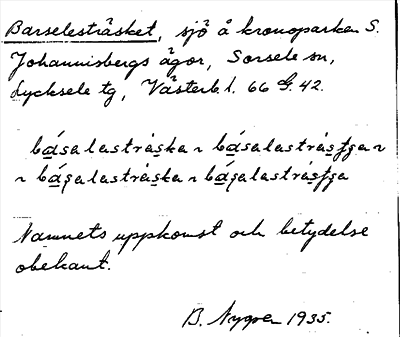 Barselesträsket, sjö å kronoparken S.
Johannisbergs ägor, Sorsele sn,
Lycksele tg, Västerb. l. 66 G. 42.
básalastráska ~ básalastrásʃʒa ~
~ báʂalastráska ~ báʂalastrásʃʒa
Namnets uppkomst och betydelse
obekant.
B. Nygren 1935.